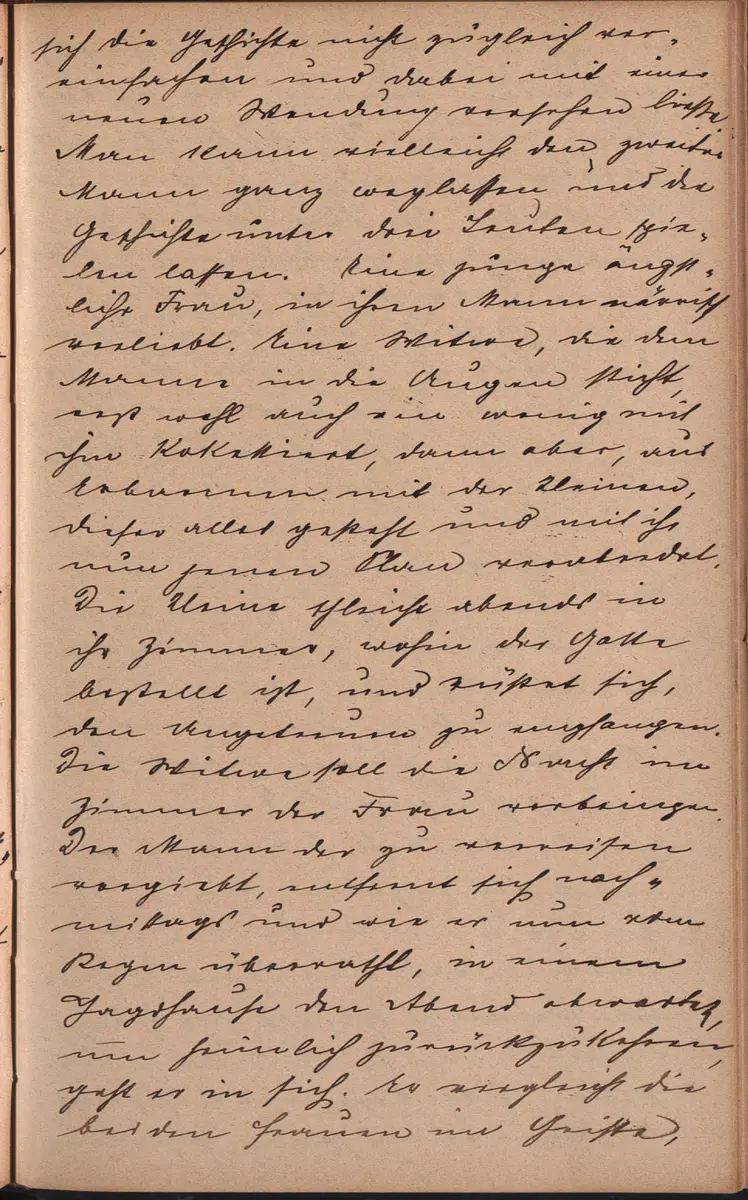 sich die Geschichte nicht zugleich ver-
einfachen und dabei mit einer
neuen Wendung versehen ließe
Man kann vielleicht den zweiten
Mann ganz weglassen und die
Geschichte unter drei Leuten spie-
len lassen. Eine junge ängst-
liche Frau, in ihren Mann närrisch
verliebt. Eine Witwe, die dem
Manne in die Augen sticht,
erst wohl auch ein wenig mit
ihm kokettiert, dann aber, aus
Erbarmen mit der Kleinen,
dieser alles gesteht und mit ihr
nun jenen Plan verabredet.
Die Kleine schleicht abends in
ihr Zimmer, wohin der Gatte
bestellt ist, und rüstet sich,
den Ungetreuen zu empfangen.
Die Witwe soll die Nacht im
Zimmer der Frau verbringen.
Der Mann der zu verreisen
vorgiebt, entfernt sich nach-
mittags und wie er nun vom
Regen überrascht, in einem
Jagdhause den Abend abwartet,
um heimlich zurückzukehren,
geht er in sich. Er vergleicht die
beiden Frauen im Geiste,